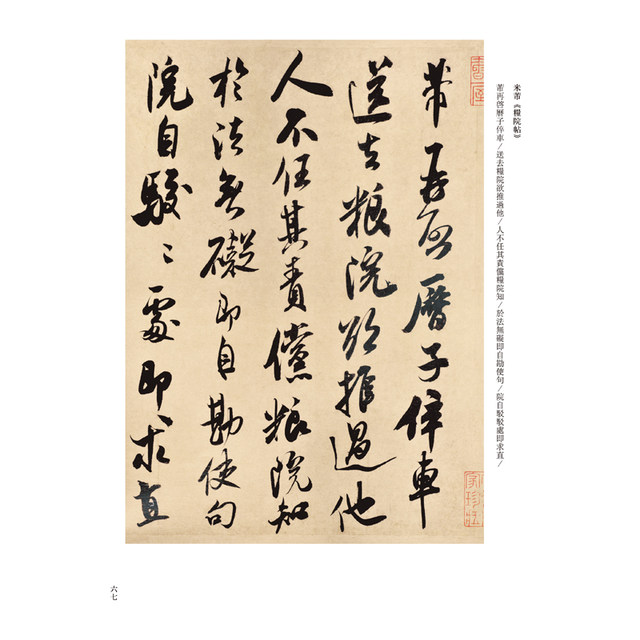 米芾《糧院帖》
芾再啓曆子倅車/送去糧院欲推過他/人不任其責儻糧院知/於法無礙即自勘使句/院自駮駮處即求直/
芾再啓曆子倅車
送去粮院欲推過他
人不任其責儻粮院知
於法無礙即自勘使句
院自駮〻處即求直
六七